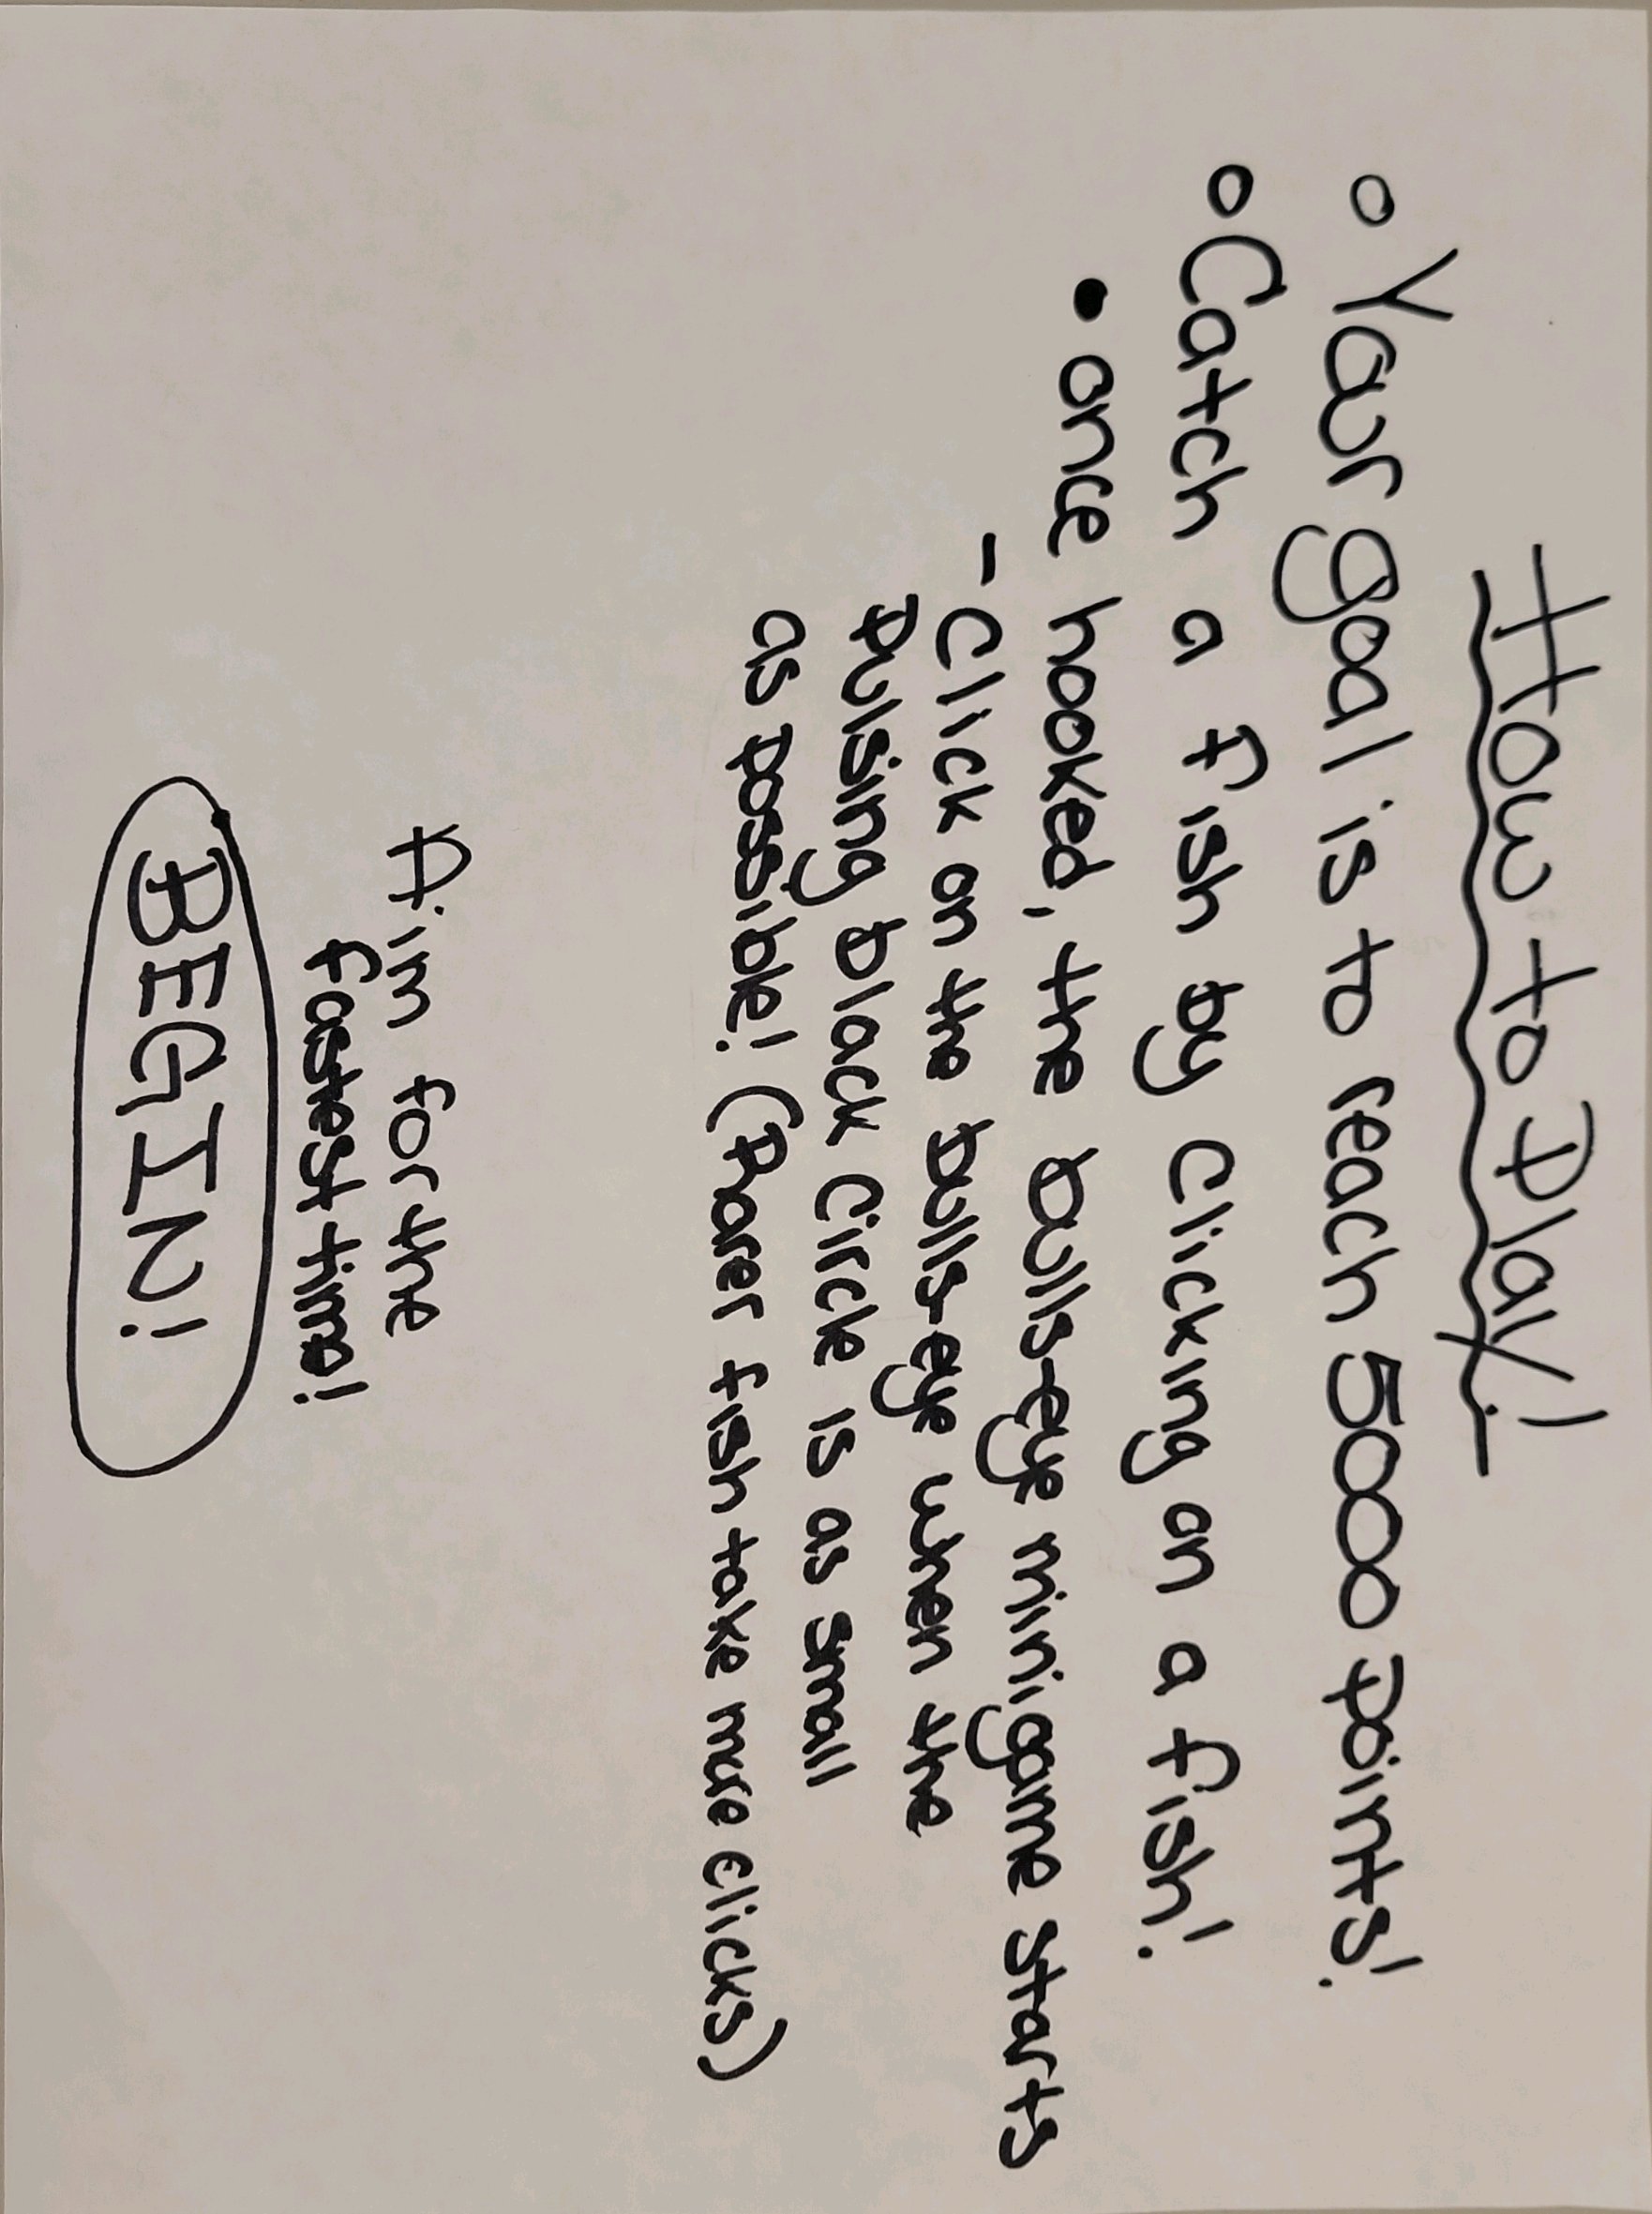 How to Play!
○ Your goal is to reach 5000 points!
○ Catch a fish by clicking on a fish!
• once hooked, the bulls-eye minigame starts
- Click on the bulls-eye when the
Pulsing black circle is as small
as possible! (Rarer fish take more clicks)
Aim for the
fastest time!
BEGIN!